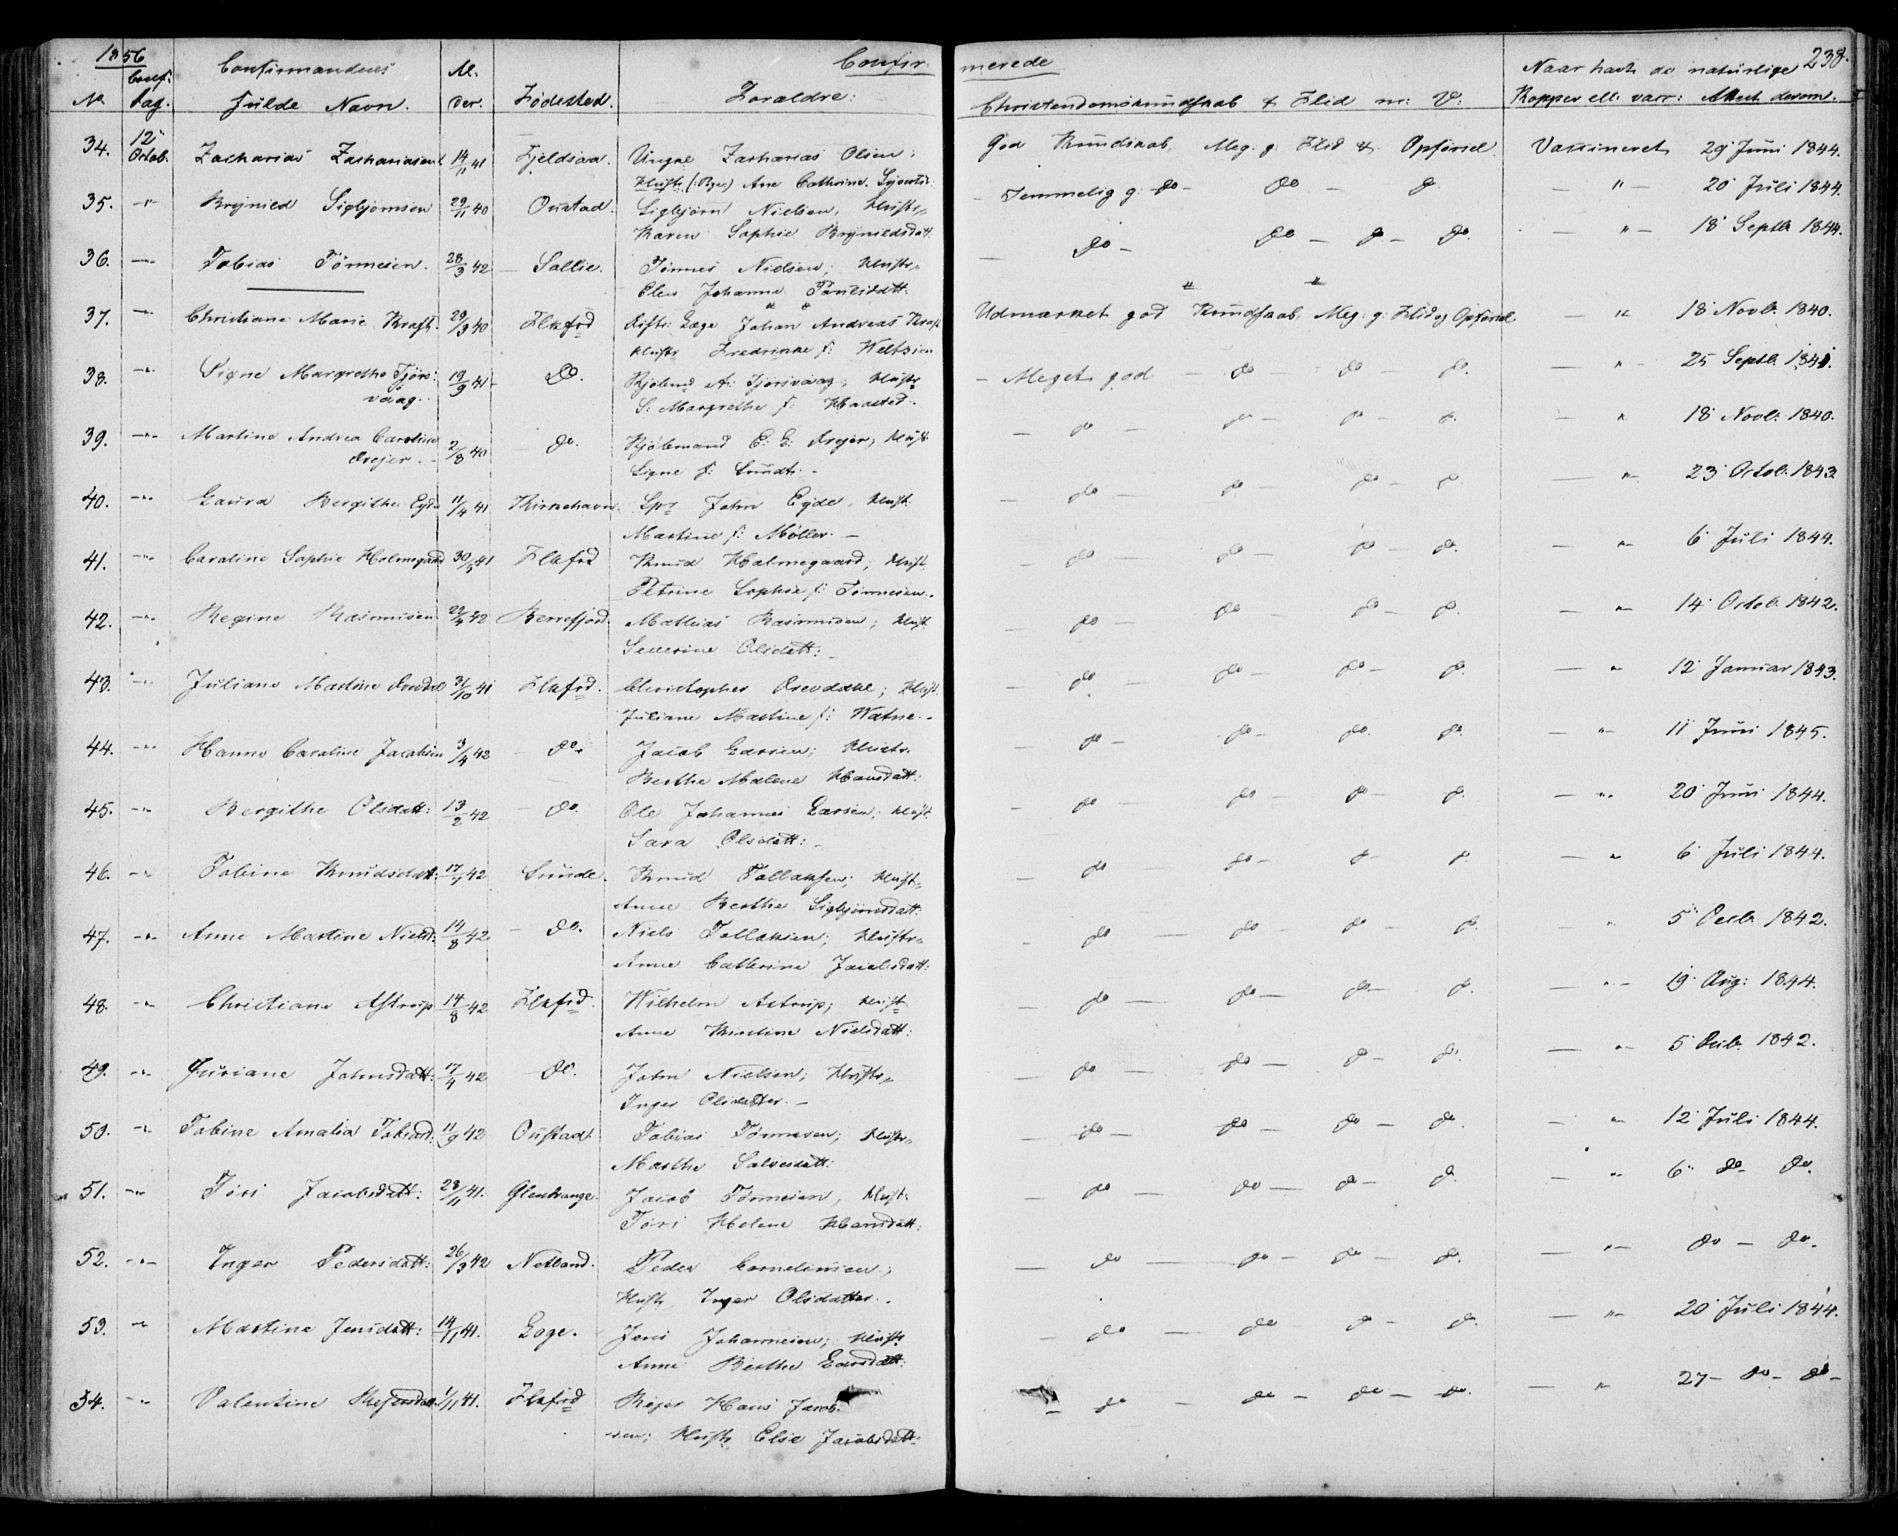 1856 Confir- merede 238.
No. Conf: Dag. Confirmandens fulde Navn. Al- der. Fødested. Forældre: Christendomskundskab & Flid m: V: Naar havt de naturlige Kopper ell. vacc: Attest derom.
34. 12' Octob. Zacharias Zachariasen 14/11 41 Fjeldsaa. Ungkl Zacharias Olsen; God Kundskab, Meg. g: Flid & Opførsel Vaccineret 29' Juni 1844.
Ane Cathrine
35. -"- Brynild Sigbjørnsen 29/11 40 Oustad. Sigbjørn Nielsen, Hustr: - Temmelig g: do - do - do - " - 20' Juli 1844.
Karen Sophie Brynildsdatt.
36. - Tobias Tønnesen. 28/3 42 - Sallie. Tønnes Nielsen; Hustr: - do - do - do - do. - " - 18' Septb 1844.
Elen Johanne Poulsdatt.
37. - Christiane Marie Kraft. 29/9 40 Flkfrd Distr: Læge Johan Andreas Kraft Udmærket god Kundskab, Meg: g: Flid og Opførsel - " 18' Novb. 1840.
Hustr Fredrikke f: Weltzien
38. -"- Signe Margrethe Tjørs- 19/9 41 - do. Kjøbmd A: Tjørsvaag; Hustr - Meget god - do - do - do. - " - 25 Septb. 1841.
vaag. S: Margrethe f: Haasted.
39. -"- Martine Andrea Caroline 2/8 40 - do. Kjøbmand E: E: Drejer; Hust - do - do - do - do. - " 18' Novb. 1840.
Drejer. - Signe f: Lundt. -
40. -"- Laura Bergithe Eyde 11/4 41 Kirkehavn. John Eyde, Hust - do - do - do - do. - " - 23' Octob. 1843
Martine f: Møller. -
41. -"- Caroline Sophie Holmegaard 30/5 41 Flkfrd Knud Holmegaard; Hust - do - do - do - do. - " - 6' Juli 1844.
Petrine Sophie f: Tønnesen.
42. -"- Regine Rasmusen 42 Berrefjord. Mathias Rasmusen; Hust - do - do - do - do. - " - 14' Octob. 1842.
Severine Olsdatt:
43. -"- Juliane Martine 31/10 41 Flkfrd. Christopher Hust - do - do - do - do. - " 12' Januar 1843.
Juliane Martine f: Watne.
44. -"- Hanne Caroline Jacobsen 3/4 42 - do. Jacob Larsen; Hustr. - do - do - do. do. - " - 11' Juni 1845.
Berthe Malene Hansdatt:
45. -"- Bergithe Olsdatt: 13/2 42 - do. Ole Johannes Larsen; Hust - do - do - do - do. - " 20' Juni 1844.
Sara Olsdatt:
46. -"- Tobine Knudsdatt: 42 Sunde. Knud Tollaksen; Hust - do - do - do - do. - " 6' Juli 1844.
Anne Berthe Sigbjørnsdatt:
47. -"- Anne Martine Nielsd: 14/8 42 - do. Niels Tollaksen; Hustr: - do - do - do - do. " 5' Decb. 1842.
Anne Cathrine Jacobsdatt:
48. -"- Christiane Astrup 14/8 42 Flkfrd. Wilhelm Astrup; Hust - do - do - do - do. - " - 19' Aug: 1844.
Anne Kirstine Nielsdatt:
49. -"- Juriane Johnsdatt: 17/4 42 - do. John Nielsen; Hustr: - do - do - do - do. - " - 5' Decb. 1842.
Inger Olsdatter. -
50. -"- Tobine Amalia Tobiasd. 11/9 42 Oustad Tobias Tønnesen; Hustr: - do - do - do - do. - " - 12' Juli 1844.
Marthe Salvesdatt:
51. -"- Tori Jacobsdatt: 28/11 41. Jacob Tønnesen, Hust: - do - do - do - do. - " 6' do - do.
Tori Helene Hansdatt:
52. -"- Inger Pedersdatt: 26/9 42 Netland. Peder Corneliusen; - do - do - do - do. - " - do - do.
Hustr. Inger Olsdatter.
53. -"- Martine Jensdatt: 14/11 41. Loge. Jens Johannesen; Hustr - do - do - do - do. - " - 20' Juli 1844.
Anne Berthe Larsdatt:
54. -"- Valentine 1/11 41. Flkfrd Røjer Hans Jacob- - do - do - do - do. - " 27 - do - do -
sen; Hustr Elie Jacobsdatt: